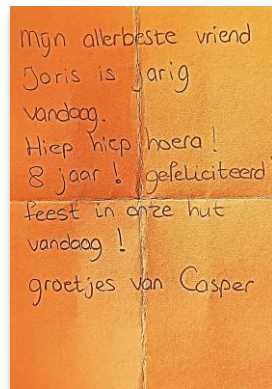 Mijn allerbeste vriend
Joris is jarig
vandaag.
Hiep hiep hoera!
8 jaar! gefeliciteerd
feest in onze hut
vandaag!
groetjes van Casper